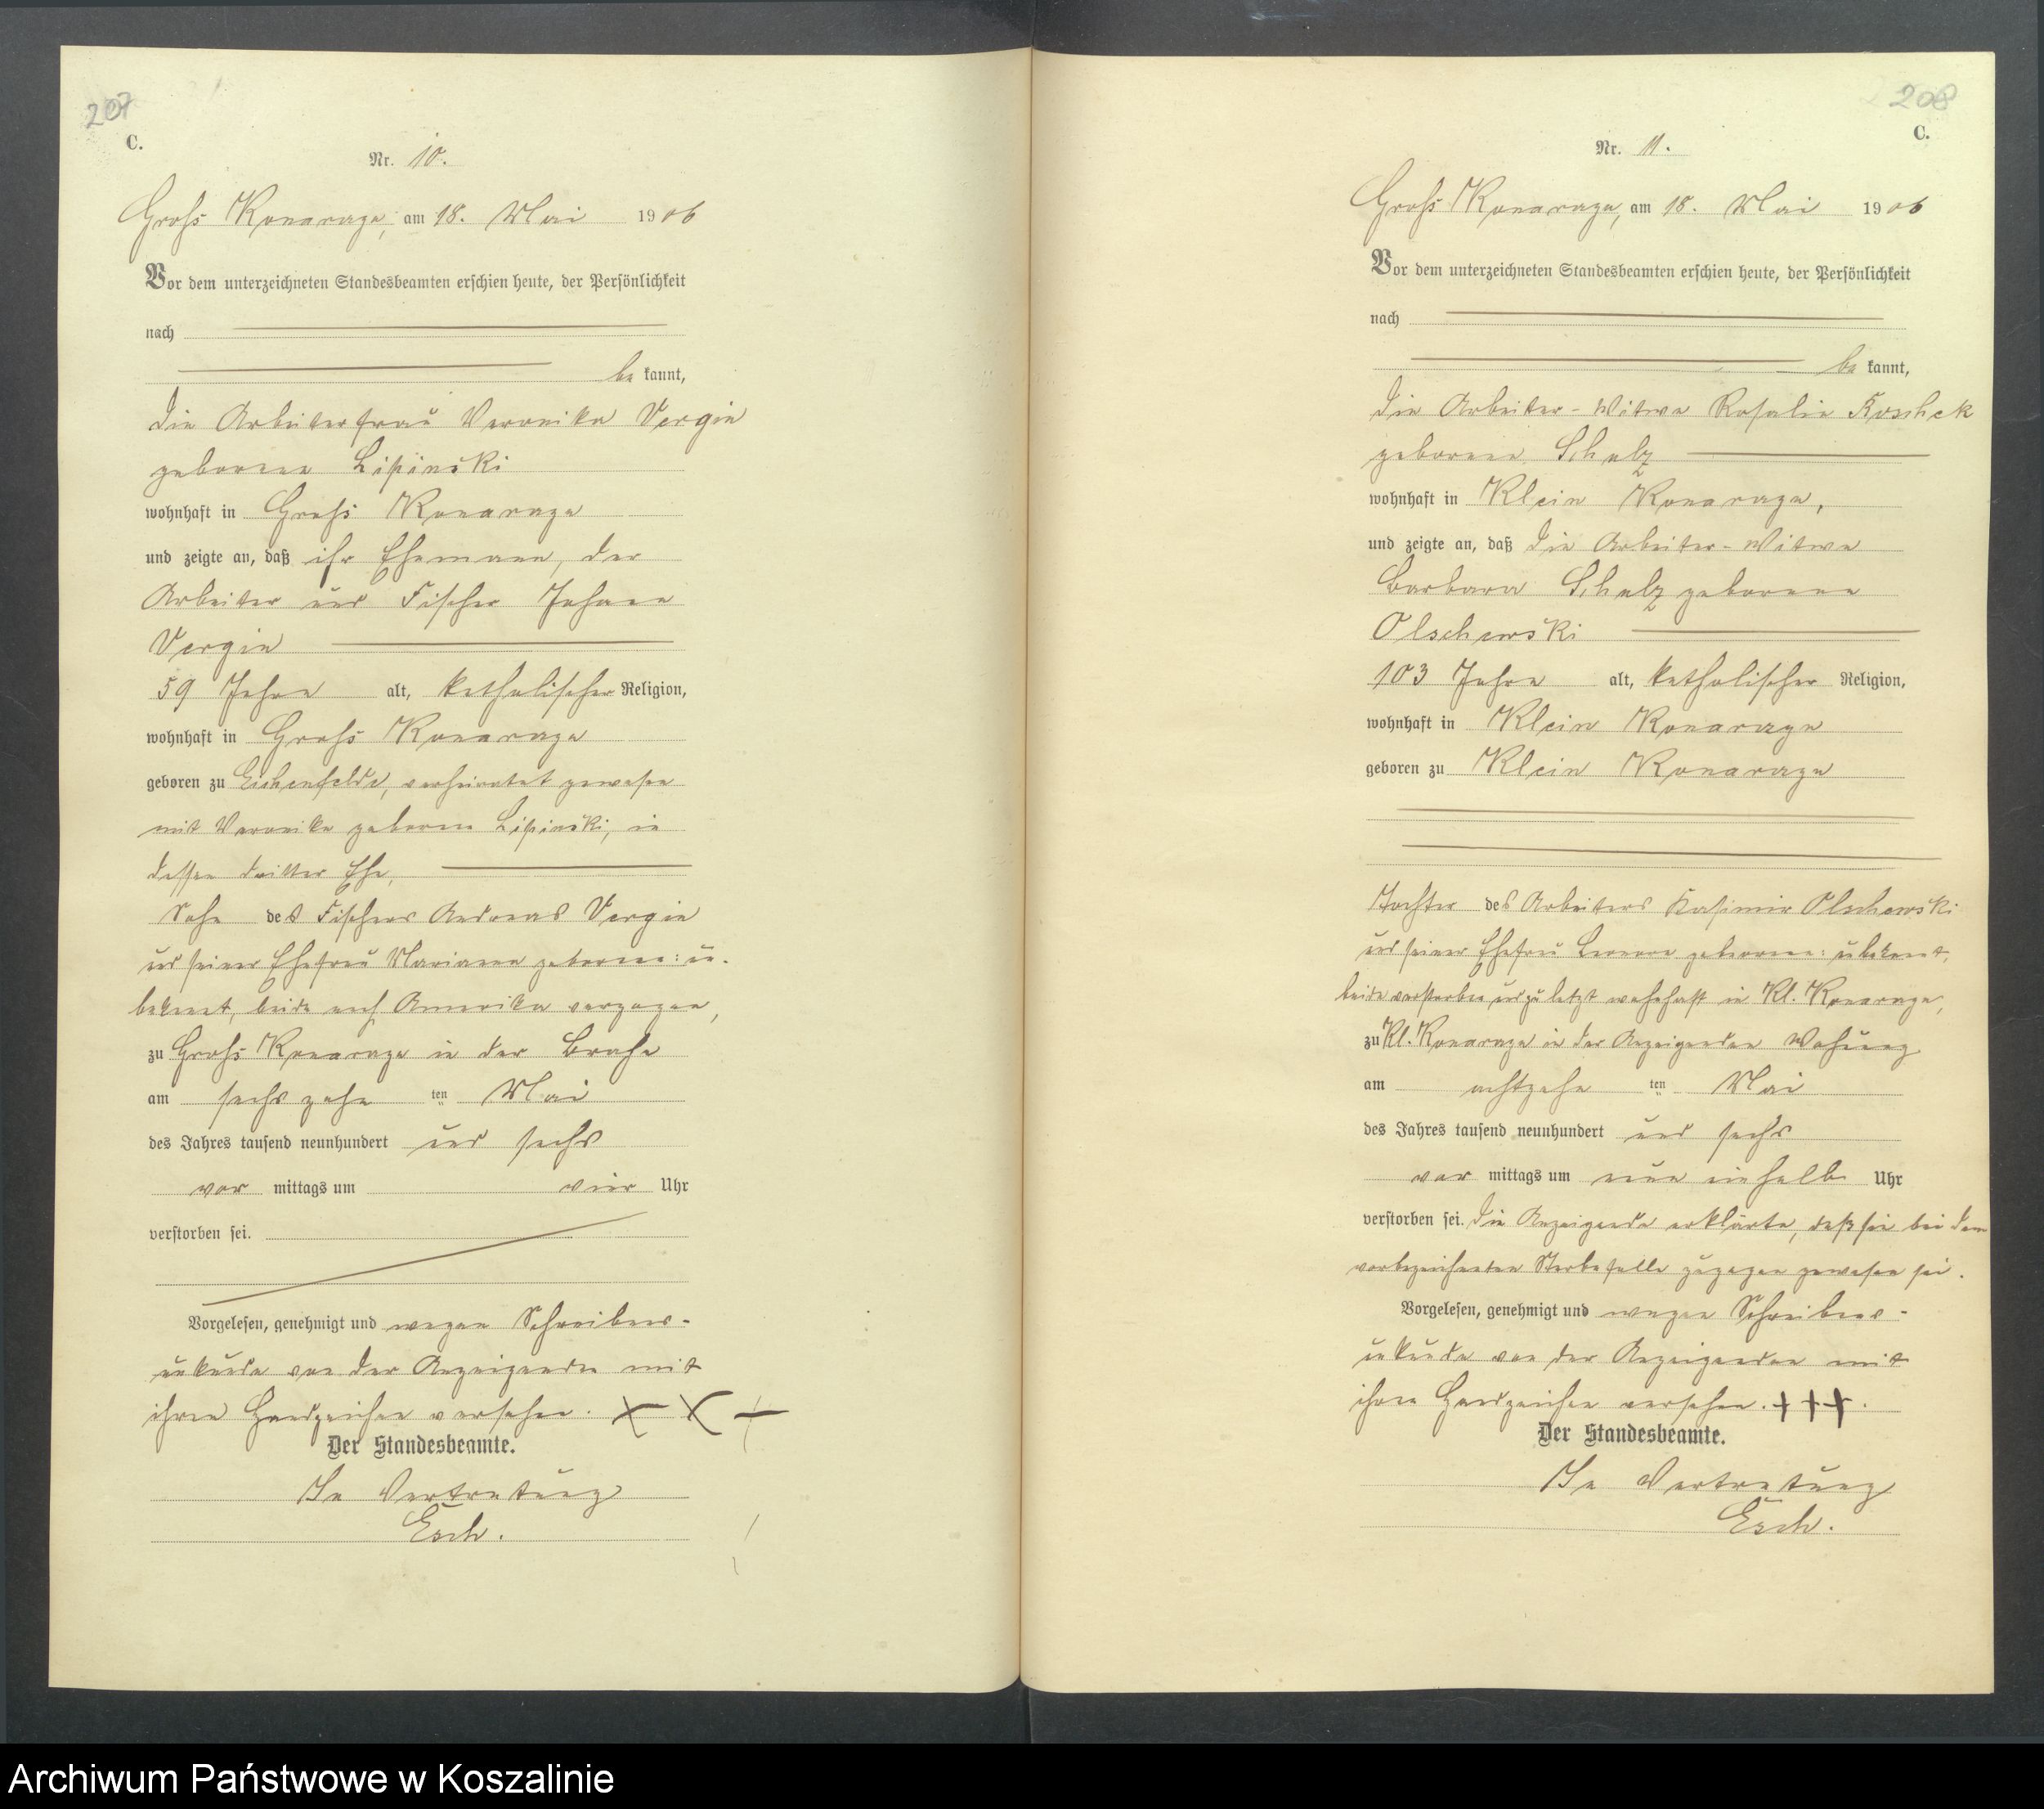 207
C.
Nr. 10.
Groß Konarzyn, am 18. Mai 1906
Vor dem unterzeichneten Standesbeamten erschien heute, der Persönlichkeit
nach
be kannt,
die Arbeiterfrau Veronika Vergin
geborene Lipinski
wohnhaft in Groß Konarzyn
und zeigte an, daß ihr Ehemann, der
Arbeiter und Fischer Johann
Vergin
59 Jahre alt, katholischer Religion,
wohnhaft in Groß Konarzyn
geboren zu Eichenfelde, verheiratet gewesen
mit Veronika geborene Lipinski, in
dessen dritter Ehe,
Sohn des Fischers Andreas Vergin
und seiner Ehefrau Marianna geborene: un-
bekannt, beide nach Amerika verzogen,
zu Groß Konarzyn in der Brahe
am sechszehn ten Mai
des Jahres tausend neunhundert und sechs
vor mittags um vier Uhr
verstorben sei.
Vorgelesen, genehmigt und wegen Schreibens-
unkunde von der Anzeigenden mit
ihren Handzeichen versehen. + + +
Der Standesbeamte.
In Vertretung
Esch.
208
C.
Nr. 11.
Groß Konarzyn, am 18. Mai 1906
Vor dem unterzeichneten Standesbeamten erschien heute, der Persönlichkeit
nach
be kannt,
die Arbeiter-Witwe Rosalie Koschek
geborene Schulz
wohnhaft in Klein Konarzyn,
und zeigte an, daß die Arbeiter-Witwe
Barbara Schulz geborene
Olschewski
103 Jahre alt, katholischer Religion,
wohnhaft in Klein Konarzyn
geboren zu Klein Konarzyn
Tochter des Arbeiters Kasimir Olschewski
und seiner Ehefrau geborene: unbekannt,
beide verstorben und zuletzt wohnhaft in Kl. Konarzyn,
zu Kl. Konarzyn in der Anzeigenden Wohnung
am achtzehn ten Mai
des Jahres tausend neunhundert und sechs
vor mittags um neun einhalb Uhr
verstorben sei. Die Anzeigende erklärte, daß sie bei dem
vorbezeichneten Sterbefalle zugegen gewesen sei.
Vorgelesen, genehmigt und wegen Schreibens-
unkunde von der Anzeigenden mit
ihren Handzeichen versehen. + + +.
Der Standesbeamte.
In Vertretung
Esch.
Archiwum Państwowe w Koszalinie